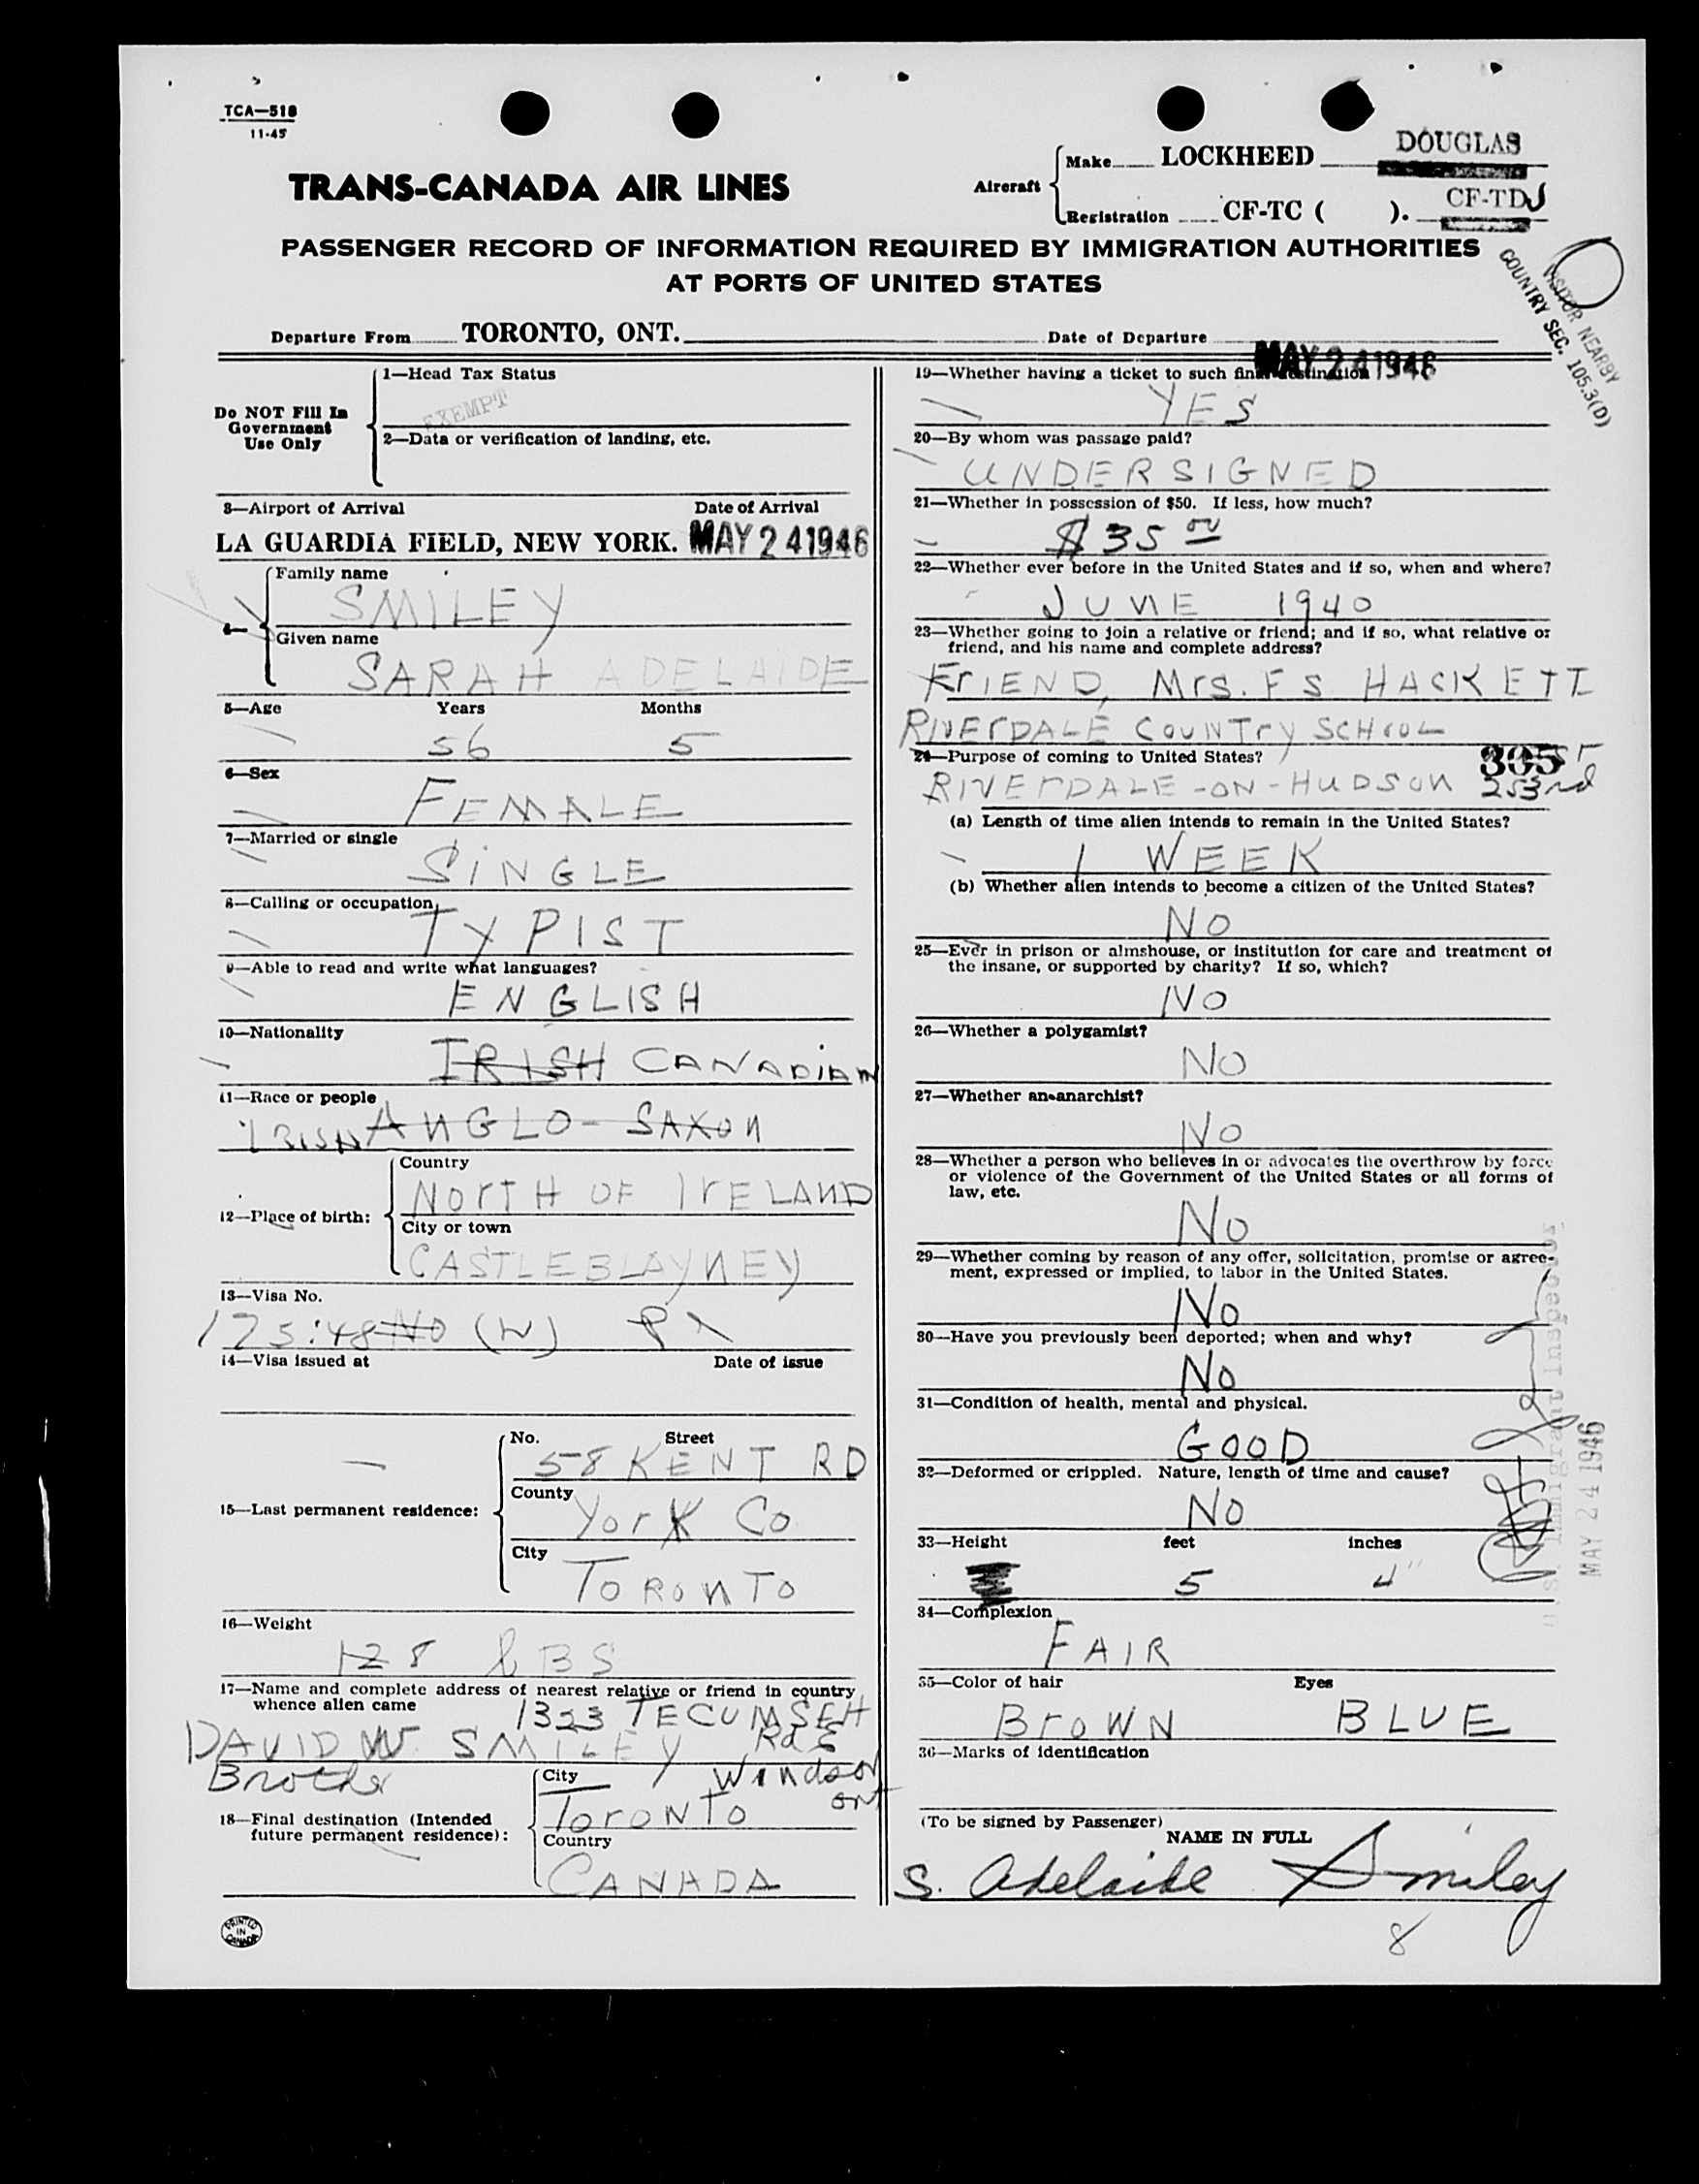 TCA—518
11-45
TRANS-CANADA AIR LINES
Aircraft
Make LOCKHEED DOUGLAS
Registration CF-TC ( ). CF-TDJ
PASSENGER RECORD OF INFORMATION REQUIRED BY IMMIGRATION AUTHORITIES
AT PORTS OF UNITED STATES
VISITOR NEARBY
COUNTRY SEC. 105.3(D)
Departure From TORONTO, ONT. Date of Departure MAY 24 1946
Do NOT Fill In
Government
Use Only
1—Head Tax Status
EXEMPT
2—Data or verification of landing, etc.
3—Airport of Arrival Date of Arrival
LA GUARDIA FIELD, NEW YORK. MAY 24 1946
4—
Family name
SMILEY
Given name
SARAH ADELAIDE
5—Age Years Months
56 5
6—Sex
FEMALE
7—Married or single
SINGLE
8—Calling or occupation
TYPIST
9—Able to read and write what languages?
ENGLISH
10—Nationality
IRISH CANADIAN
11—Race or people
IRISH ANGLO-SAXON
12—Place of birth:
Country
NORTH OF IRELAND
City or town
CASTLEBLAYNEY
13—Visa No.
175:48 NO (W)
14—Visa issued at Date of issue
15—Last permanent residence:
No. Street
58 KENT RD
County
York Co
City
TORONTO
16—Weight
128 LBS
17—Name and complete address of nearest relative or friend in country
whence alien came
1323 TECUMSEH
DAVID W. SMILEY Rd E
Brother Windsor
Ont
18—Final destination (Intended
future permanent residence):
City
TORONTO
Country
CANADA
PRINTED
IN
CANADA
19—Whether having a ticket to such final destination
YES
20—By whom was passage paid?
UNDERSIGNED
21—Whether in possession of $50. If less, how much?
$35 00
22—Whether ever before in the United States and if so, when and where?
JUNE 1940
23—Whether going to join a relative or friend; and if so, what relative or
friend, and his name and complete address?
FRIEND, Mrs. F S HACKETT
RIVERDALE COUNTRY SCHOOL
24—Purpose of coming to United States? 305 ST
RIVERDALE-ON-HUDSON 253rd
(a) Length of time alien intends to remain in the United States?
1 WEEK
(b) Whether alien intends to become a citizen of the United States?
NO
25—Ever in prison or almshouse, or institution for care and treatment of
the insane, or supported by charity? If so, which?
NO
26—Whether a polygamist?
NO
27—Whether an anarchist?
NO
28—Whether a person who believes in or advocates the overthrow by force
or violence of the Government of the United States or all forms of
law, etc.
NO
29—Whether coming by reason of any offer, solicitation, promise or agree-
ment, expressed or implied, to labor in the United States.
NO
30—Have you previously been deported; when and why?
NO
31—Condition of health, mental and physical.
GOOD
32—Deformed or crippled. Nature, length of time and cause?
NO
33—Height feet inches
5 4"
34—Complexion
FAIR
35—Color of hair Eyes
BROWN BLUE
36—Marks of identification
U.S. Immigrant Inspector
MAY 24 1946
(To be signed by Passenger)
NAME IN FULL
S. Adelaide Smiley
8